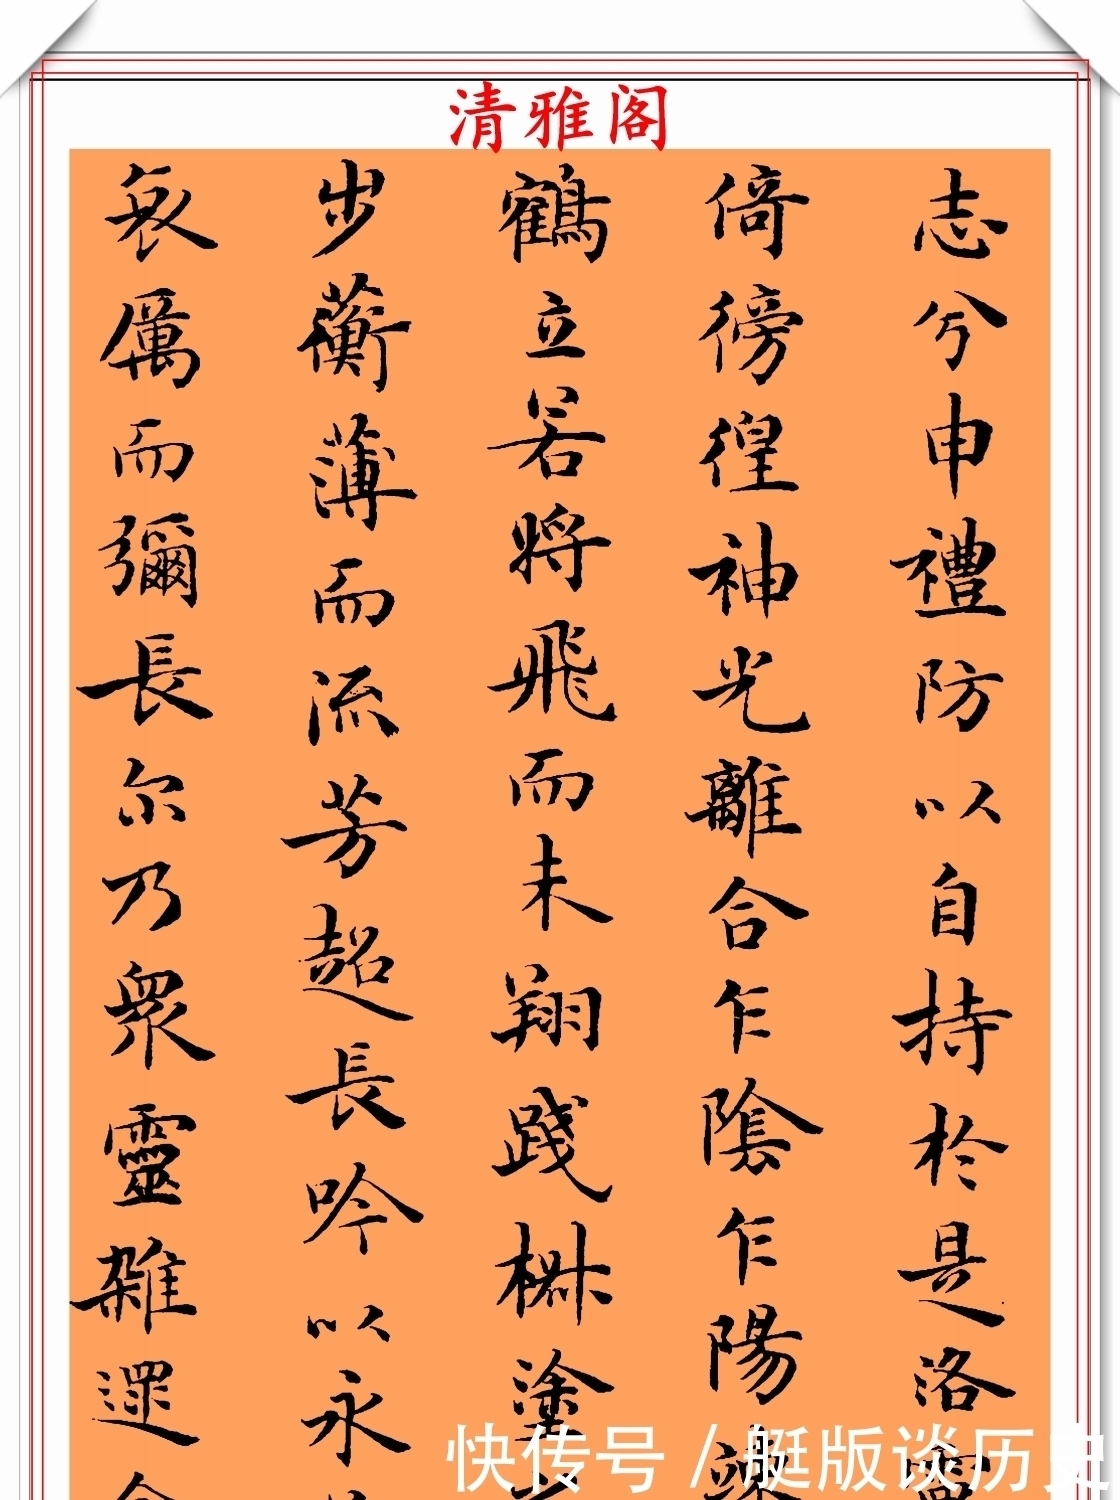 清雅阁
志兮申禮防以自持於是洛
倚徬徨神光離合乍陰乍陽
鶴立若将飛而未翔踐椒塗
步蘅薄而流芳超長吟以永
哀厲而彌長尔乃衆靈雜遝
快传号/艇版谈历史